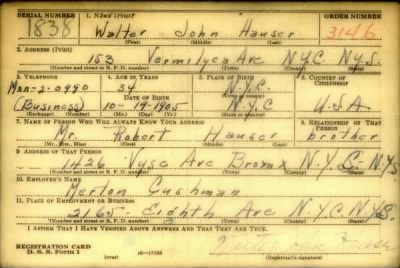 SERIAL NUMBER 1. NAME (Print) ORDER NUMBER
1838 Walter John Hauser 3146
(First) (Middle) (Last)
2. ADDRESS (Print)
153 Vermilyea Ave N.Y.C. N.Y.S.
(Number and street or R. F. D. number) (Town) (County) (State)
3. TELEPHONE 4. AGE IN YEARS 5. PLACE OF BIRTH 6. COUNTRY OF CITIZENSHIP
34 N.Y.C.
DATE OF BIRTH (Town or county)
(Business) 10-19-1905 N.Y.C U.S.A
(Exchange) (Number) (Mo.) (Day) (Yr.) (State or country)
7. NAME OF PERSON WHO WILL ALWAYS KNOW YOUR ADDRESS 8. RELATIONSHIP OF THAT PERSON
Mr. Robert Hauser brother
(Mr., Mrs., Miss) (First) (Middle) (Last)
9. ADDRESS OF THAT PERSON
1426 Vyse Ave Bronx N.Y.S. N.Y.S
(Number and street or R. F. D. number) (Town) (County) (State)
10. EMPLOYER'S NAME
Merton Cushman
11. PLACE OF EMPLOYMENT OR BUSINESS
2165 Eighth Ave N.Y.C N.Y.S.
(Number and street or R. F. D. number) (Town) (County) (State)
I AFFIRM THAT I HAVE VERIFIED ABOVE ANSWERS AND THAT THEY ARE TRUE.
REGISTRATION CARD
D. S. S. Form 1 (over) (Registrant's signature)